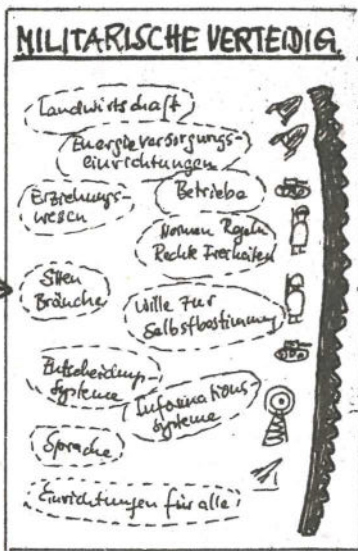 MILITÄRISCHE VERTEIDIG.
Landwirtschaft
Energieversorgungs-
einrichtungen
Erziehungs-
wesen
Betriebe
Normen Regeln
Rechte Freiheiten
Sitten
Bräuche
Wille zur
Selbstbestimmung
Entscheidungs-
systeme
Informations-
systeme
Sprache
Einrichtungen für alle